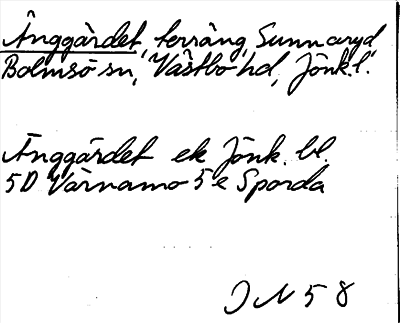 Änggärdet, terräng, Sunnaryd,
Bolmsö sn, Västbo hd, Jönk.l.
Änggärdet ek Jönk. bl.
5D Värnamo 5e Sporda
ON 58